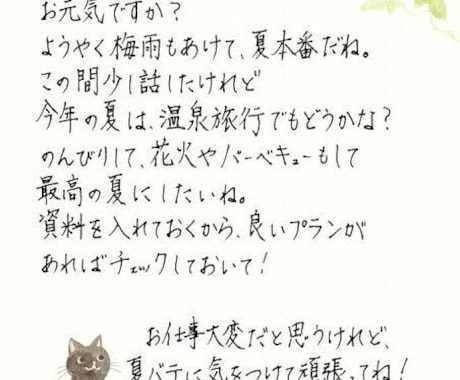 お元気ですか?
ようやく梅雨もあけて、夏本番だね。
この間少し話したけれど
今年の夏は、温泉旅行でもどうかな?
のんびりして、花火やバーベキューもして
最高の夏にしたいね。
資料を入れておくから、良いプランが
あればチェックしておいて!
お仕事大変だと思うけれど、
夏バテに気をつけて頑張ってね!